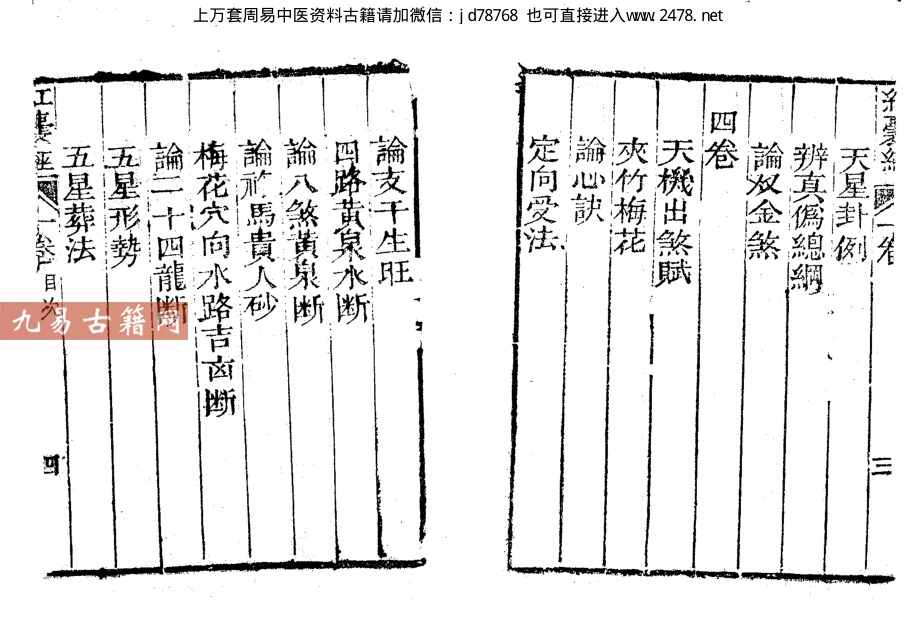 上万套周易中医资料古籍请加微信：jd78768 也可直接进入www.2478.net
天星卦例
辨真偽總綱
論双金煞
四卷
天機出煞賦
夾竹梅花
論心訣
定向受法
三
論支干生旺
四路黃泉水断
論八煞黃泉断
論祿馬貴人砂
梅花穴向水路吉凶断
論二十四龍断
五星形勢
五星葬法
目次
四
九易古籍网